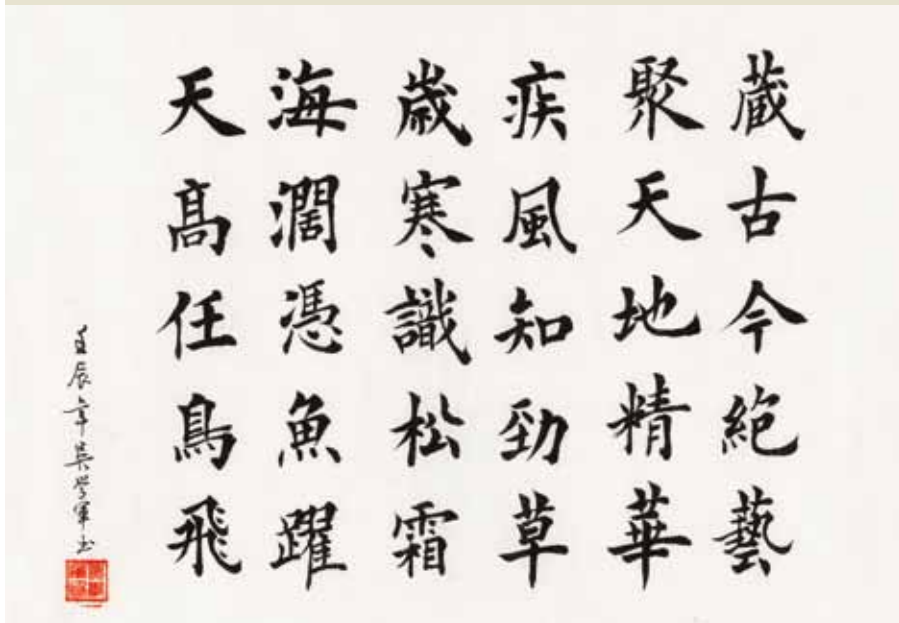 藏古今絕藝
聚天地精華
疾風知勁草
歲寒識松霜
海濶憑魚躍
天高任鳥飛
壬辰年吳学军书